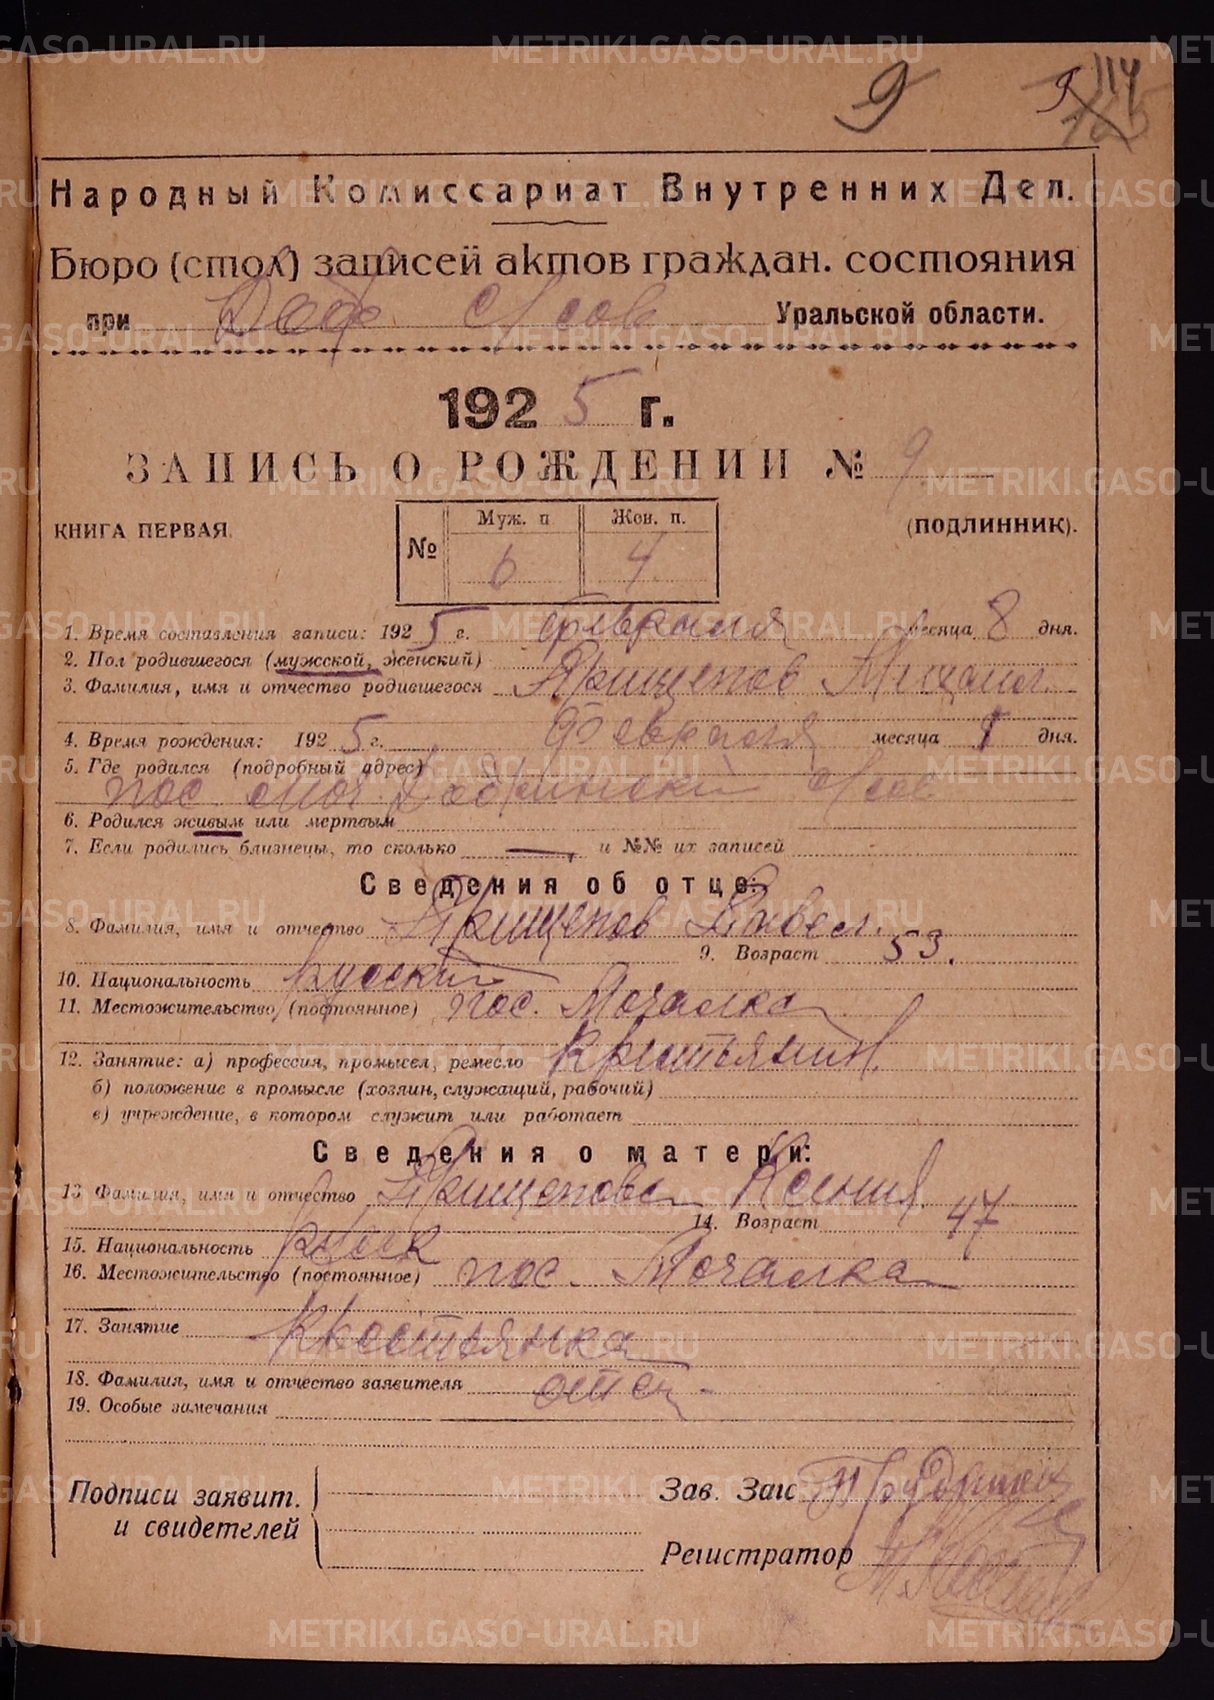 9 9 114
Народный Комиссариат Внутренних Дел.
Бюро (стол) записей актов граждан. состояния
при Уральской области.
1925 г.
ЗАПИСЬ О РОЖДЕНИИ № 9
КНИГА ПЕРВАЯ. № Муж. п. Жен. п. (ПОДЛИННИК).
4
1. Время составления записи: 1925 г. февраля месяца 8 дня.
2. Пол родившегося (мужской, женский)
3. Фамилия, имя и отчество родившегося Прищепов Михаил.
4. Время рождения: 1925 г. Февраля месяца дня.
5. Где родился (подробный адрес)
пос.
6. Родился живым или мертвым
7. Если родились близнецы, то сколько — и №№ их записей
Сведения об отце:
8. Фамилия, имя и отчество Прищепов Павел.
9. Возраст 53.
10. Национальность Русский
11. Местожительство (постоянное) пос. Мочалка
12. Занятие: а) профессия, промысел, ремесло Крестьянин.
б) положение в промысле (хозяин, служащий, рабочий)
в) учреждение, в котором служит или работает
Сведения о матери:
13 Фамилия, имя и отчество Прищепова Ксения.
14. Возраст 47
15. Национальность Русск
16. Местожительство (постоянное) пос. Мочалка
17. Занятие Крестьянка
18. Фамилия, имя и отчество заявителя отец
19. Особые замечания
Подписи заявит. Зав. Загс
и свидетелей
Регистратор
METRIKI.GASO-URAL.RU